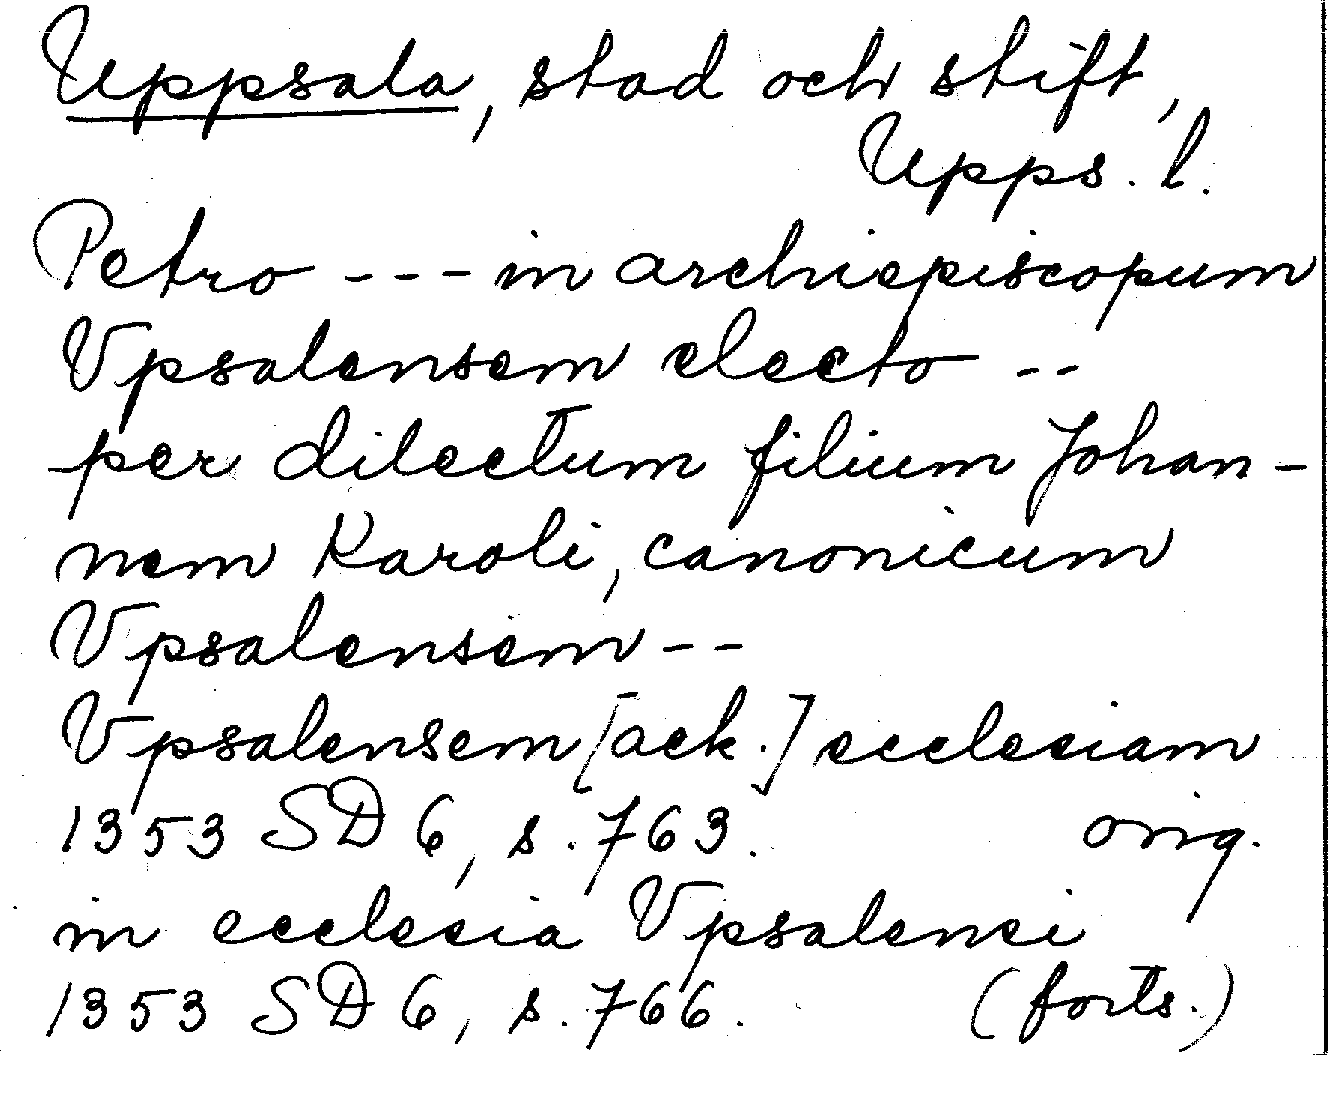 Uppsala, stad och stift,
Upps. l.
Petro --- in archiepiscopum
Vpsalensem electo --
per dilectum filium Johan-
nem Karoli, canonicum
Vpsalensem --
Vpsalensem [ack.] ecclesiam
1353 SD 6, s. 763. orig.
in ecclesia Vpsalensi
1353 SD 6, s. 766. (forts.)